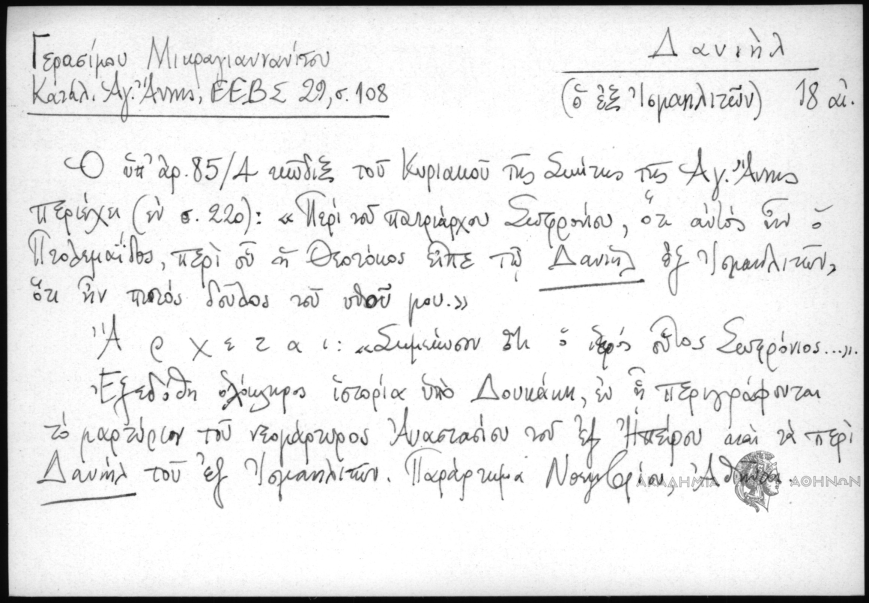 Γερασίμου Μικραγιαννανίτου
Κατάλ. Ἁγ. Ἄννης, ΕΕΒΣ 29, σ. 108
Δανιὴλ
(ὁ ἐξ Ἰσμαηλιτῶν) 18 αἰ.
Ὁ ὑπ' ἀρ. 85/4 κῶδιξ τοῦ Κυριακοῦ τῆς Σκήτης τῆς Ἁγ. Ἄννης
περιέχει (ἐν σ. 220): «Περὶ τοῦ πατριάρχου Σωφρονίου, ὅτι αὐτὸς ἦν ὁ
Πτολεμαΐδος, περὶ οὗ ἡ Θεοτόκος εἶπε τῷ Δανιὴλ ἐξ Ἰσμαηλιτῶν,
ὅτι ἦν πιστὸς δοῦλος τοῦ υἱοῦ μου.»
Ἄρχεται: «Σημείωσον ὅτι ὁ ἱερὸς οὗτος Σωφρόνιος...».
Ἐξεδόθη ὁλόκληρος ἱστορία ὑπὸ Δουκάκη, ἐν ᾗ περιγράφονται
τὸ μαρτύριον τοῦ νεομάρτυρος Ἀναστασίου τοῦ ἐξ Ἠπείρου καὶ τὰ περὶ
Δανιὴλ τοῦ ἐξ Ἰσμαηλιτῶν. Παράρτημα Νοεμβρίου, Ἀθῆναι.
ΑΚΑΔΗΜΙΑ ΑΘΗΝΩΝ